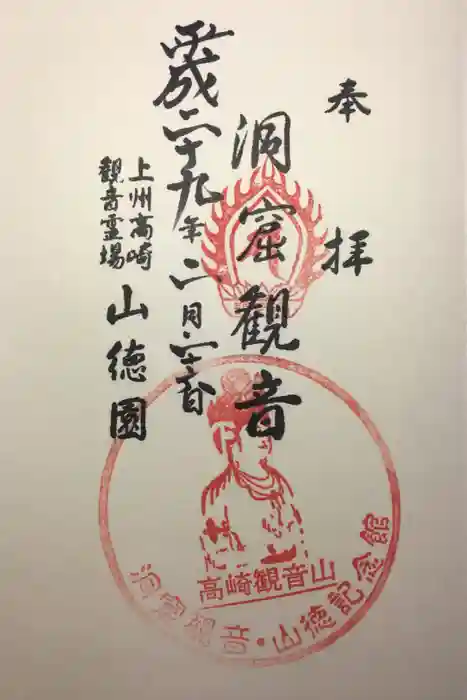 奉拝
洞窟観音
平成二十九年二月二十六日
上州高崎
観音霊場
山徳園
高崎観音山
洞窟観音・山徳記念館